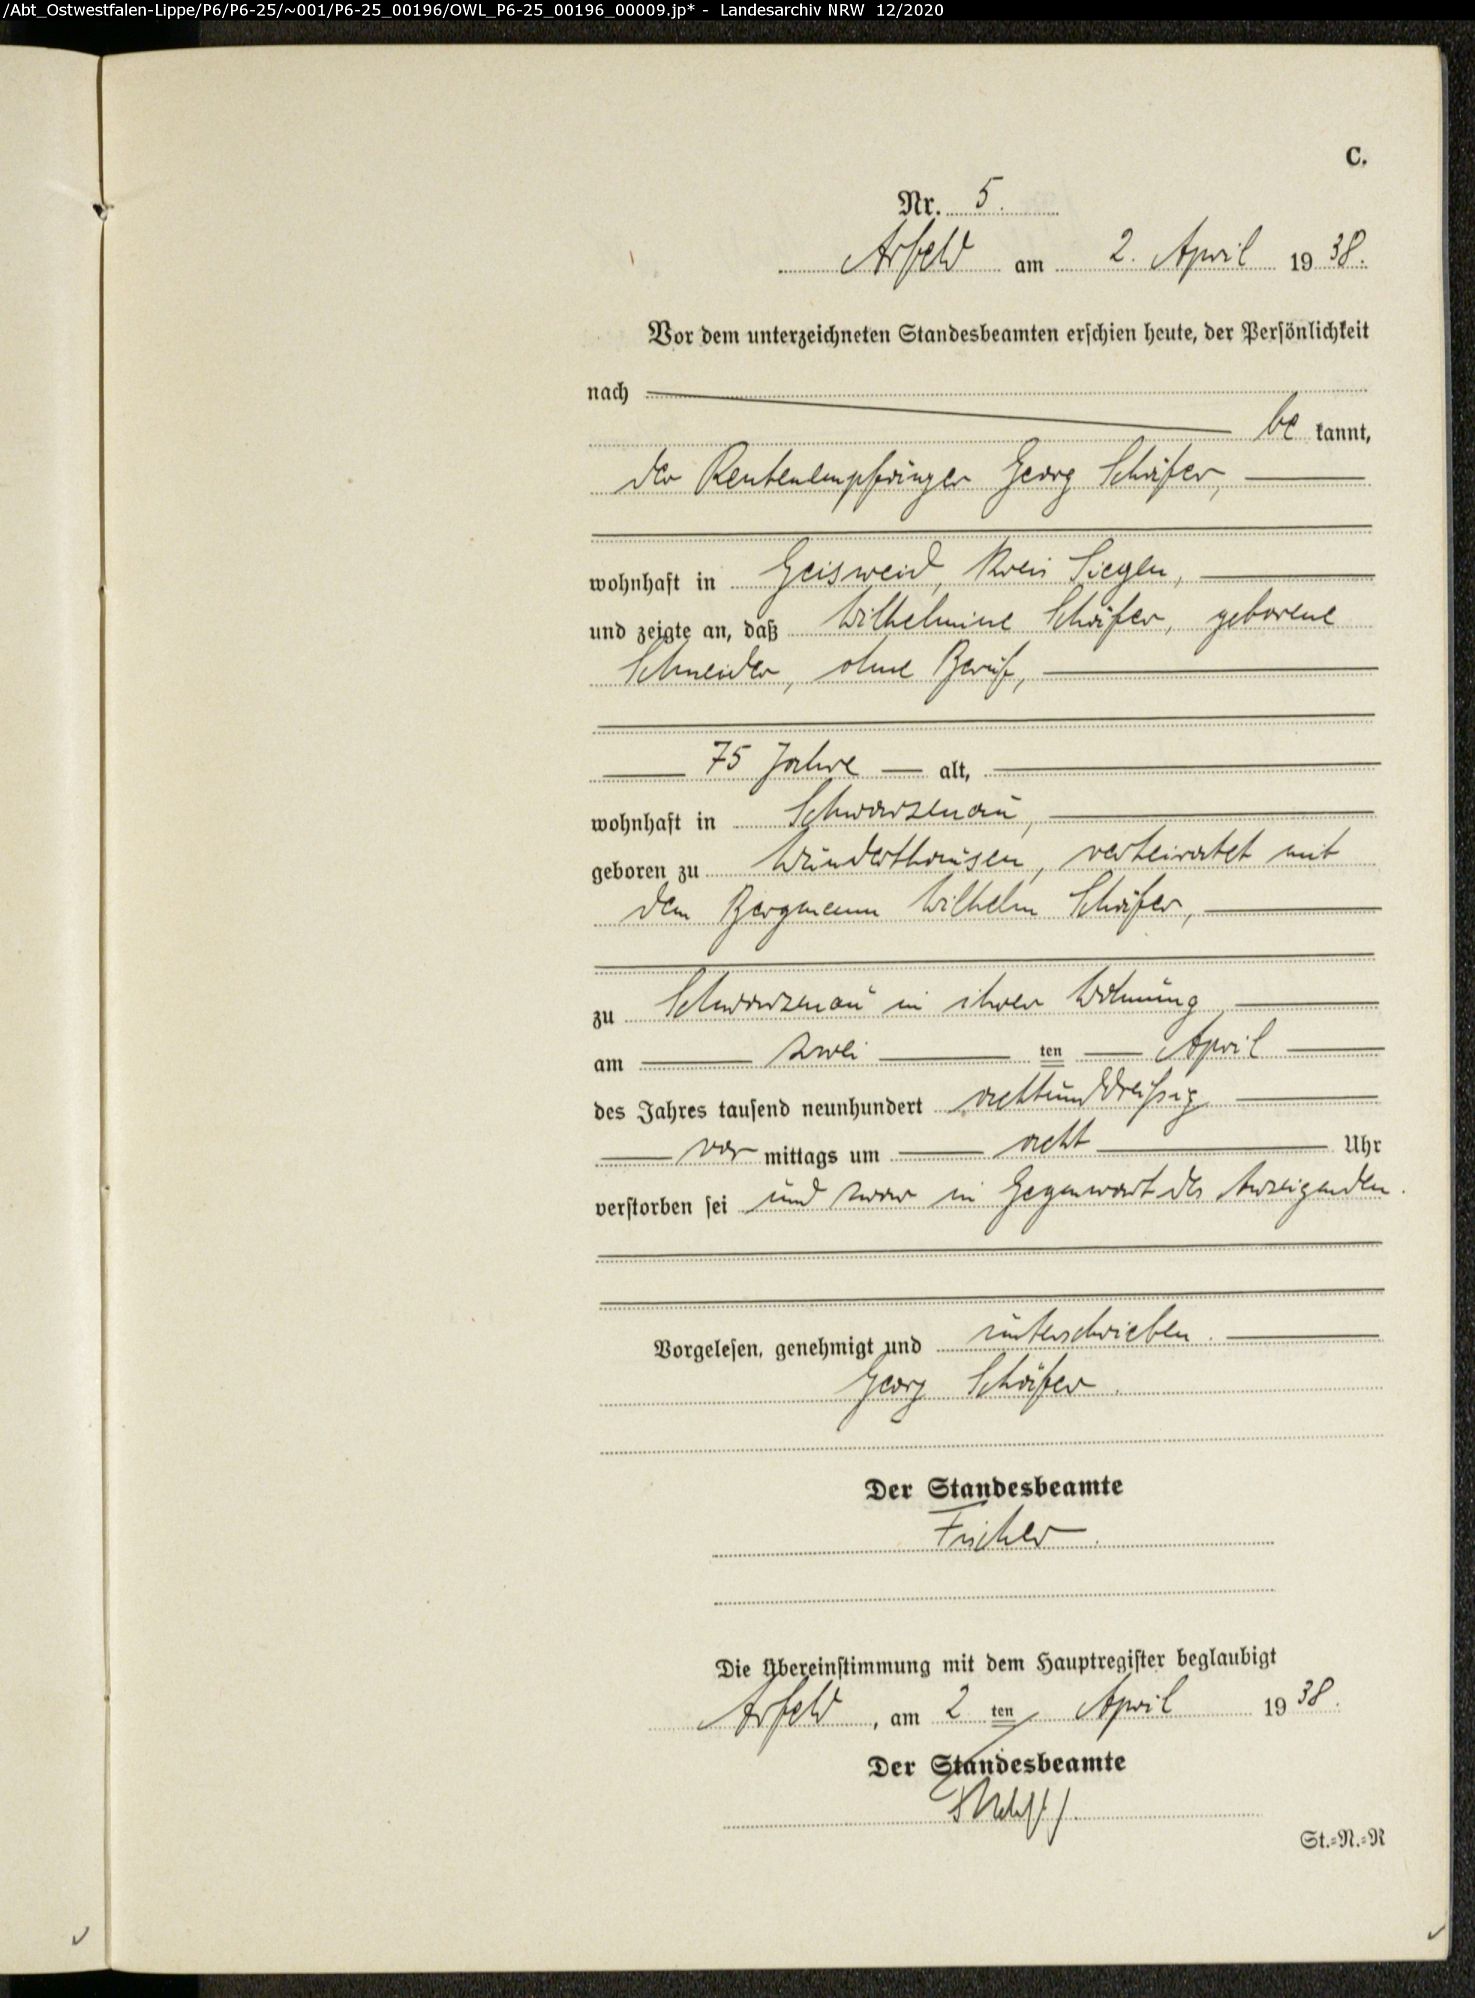 /Abt_Ostwestfalen-Lippe/P6/P6-25/~001/P6-25_00196/OWL_P6-25_00196_00009.jp* - Landesarchiv NRW 12/2020
C.
Nr. 5.
Arfeld am 2. April 1938.
Vor dem unterzeichneten Standesbeamten erschien heute, der Persönlichkeit
nach
be kannt,
der Rentenempfänger Georg Schäfer,
wohnhaft in Geisweid, Kreis Siegen,
und zeigte an, daß Wilhelmine Schäfer, geborene
Schneider, ohne Beruf,
75 Jahre alt,
wohnhaft in Schwarzenau,
geboren zu Wunderthausen, verheiratet mit
dem Bergmann Wilhelm Schäfer,
zu Schwarzenau in ihrer Wohnung
am zwei ten April
des Jahres tausend neunhundert achtunddreißig
vor mittags um acht Uhr
verstorben sei und zwar in Gegenwart des Anzeigenden.
Vorgelesen, genehmigt und unterschrieben.
Georg Schäfer.
Der Standesbeamte
Die Übereinstimmung mit dem Hauptregister beglaubigt
Arfeld, am 2 ten April 1938.
Der Standesbeamte
St.=N.=R